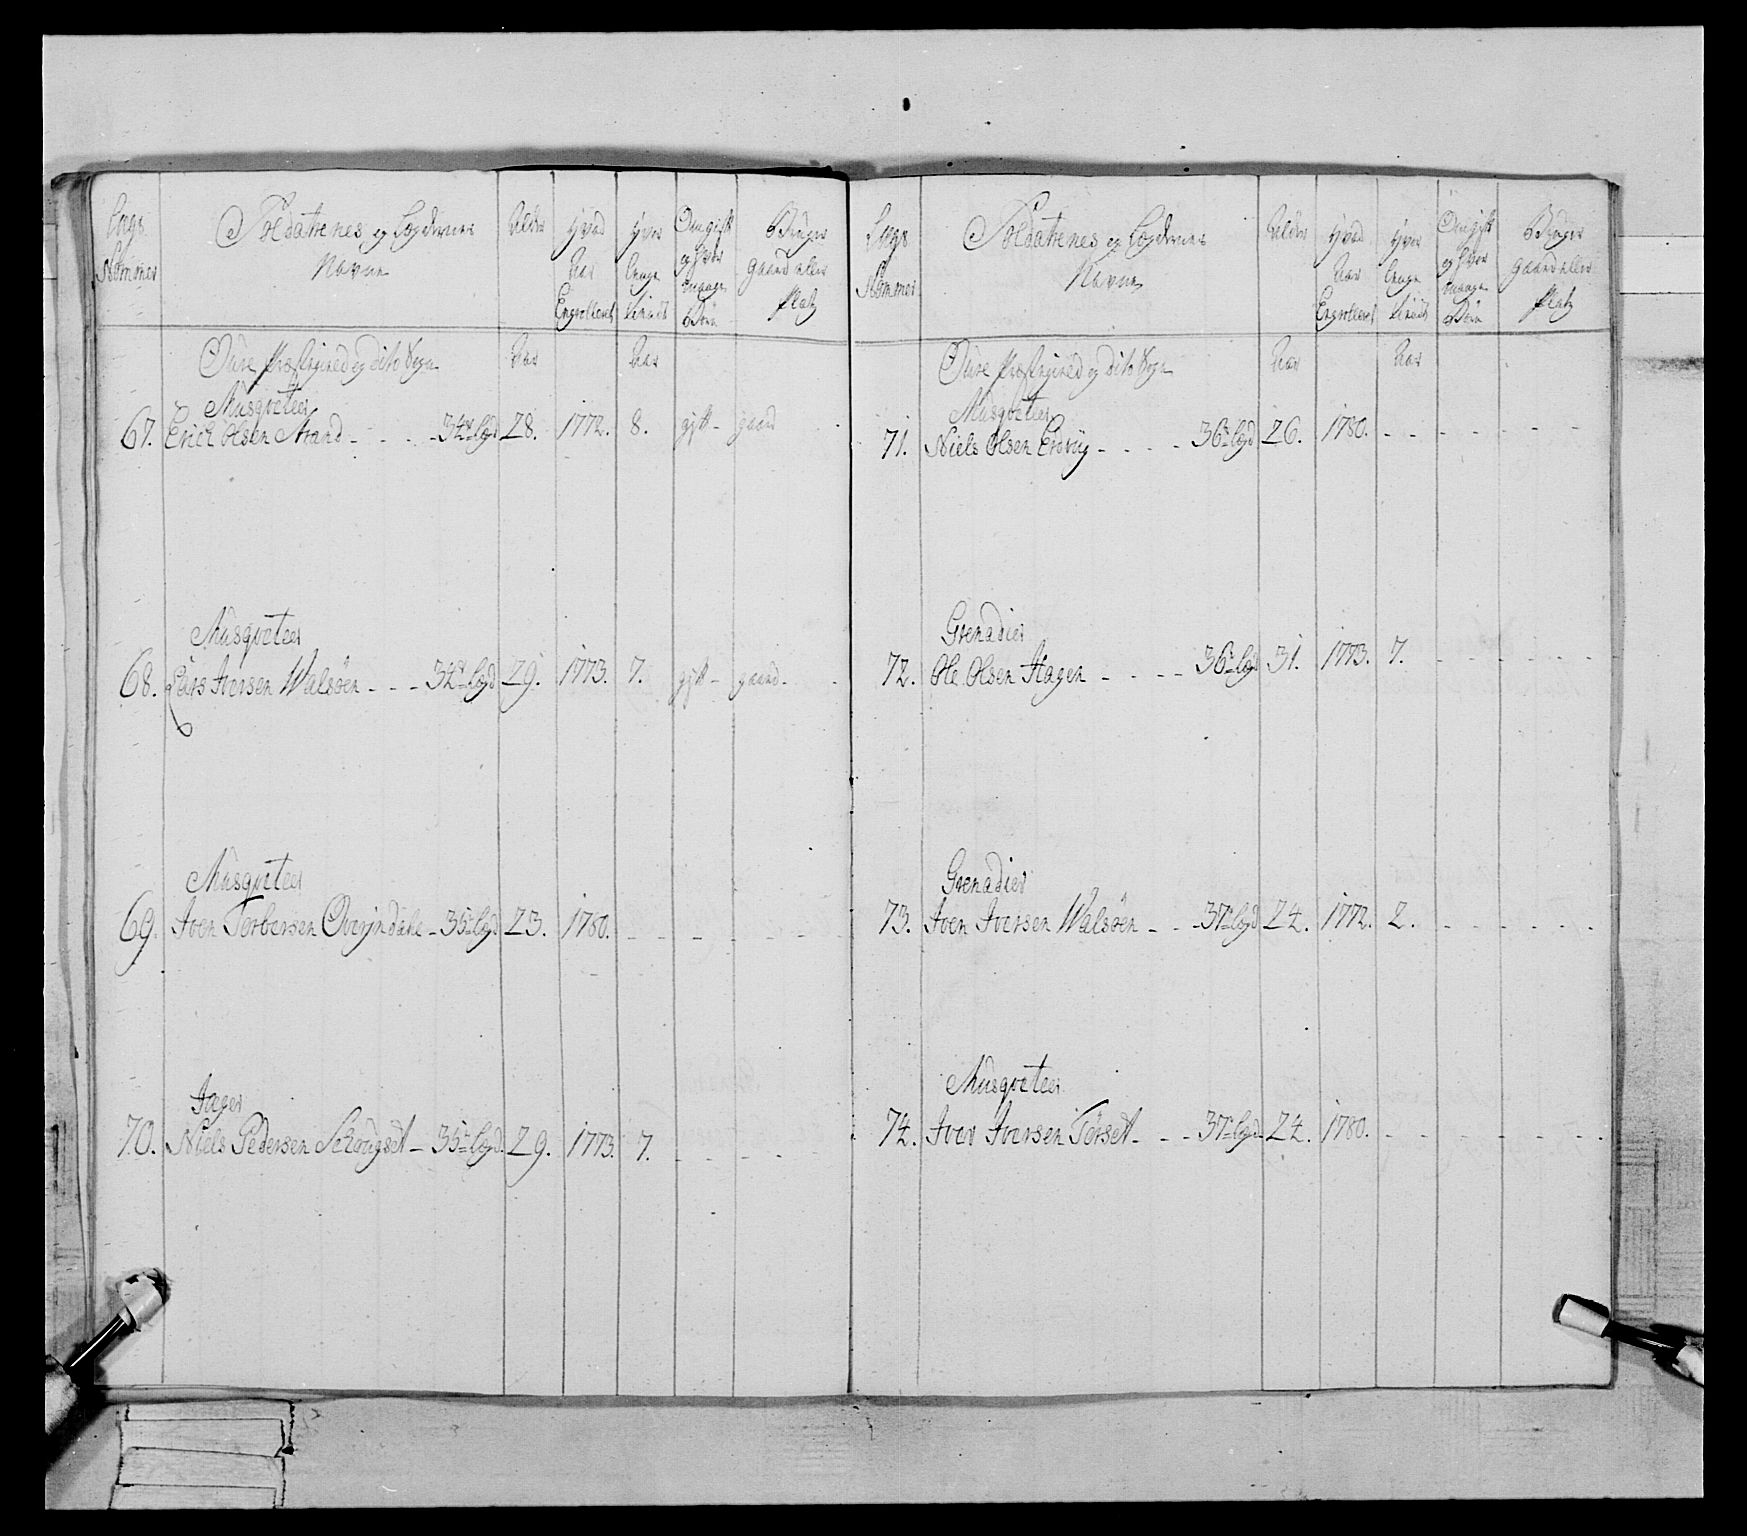 Lægs
Nommer
Soldaternes og Lægdernes
Navne
Alder
Hvad
Aar
Enrolleret
Hvor
længe
tient
Om gift
og hvor
mange
Børn
Bruger
gaard eller
Platz
Oure Præstegield og dito Sogn
Aar
Aar
Musqveteer
67. Erich Olsen Strand - - - - 34de lægd 28. 1772. 8. gift - gaard
Musqveteer
68. Lars Iversen Walsøen - - - 34de lægd 29. 1773. 7. gift - gaard -
Musqveteer
69. Iver Torbersen - 35te lægd 23. 1780. - - - - -
Jæger
70. Niels Pedersen - 35te lægd 29. 1773. 7. - - - - -
Lægs
Nommer
Soldaternes og Lægdernes
Navne
Alder
Hvad
Aar
Enrolleret
Hvor
længe
tient
Om gift
og hvor
mange
Børn
Bruger
gaard eller
Platz
Oure Præstegield og dito Sogn
Aar
Aar
Musqveteer
71. Niels Olsen - - - - 36te lægd 26. 1780. - - - - - -
Grenadier
72. Ole Olsen Hagen - - - - 36te lægd 31. 1773. 7. - - - - - -
Grenadier
73. Iver Iversen Walsøen - - - 37te lægd 24. 1772. 2. - - - - - -
Musqveteer
74. Iver Iversen Torset - - - 37te lægd 24. 1780. - - - - - -